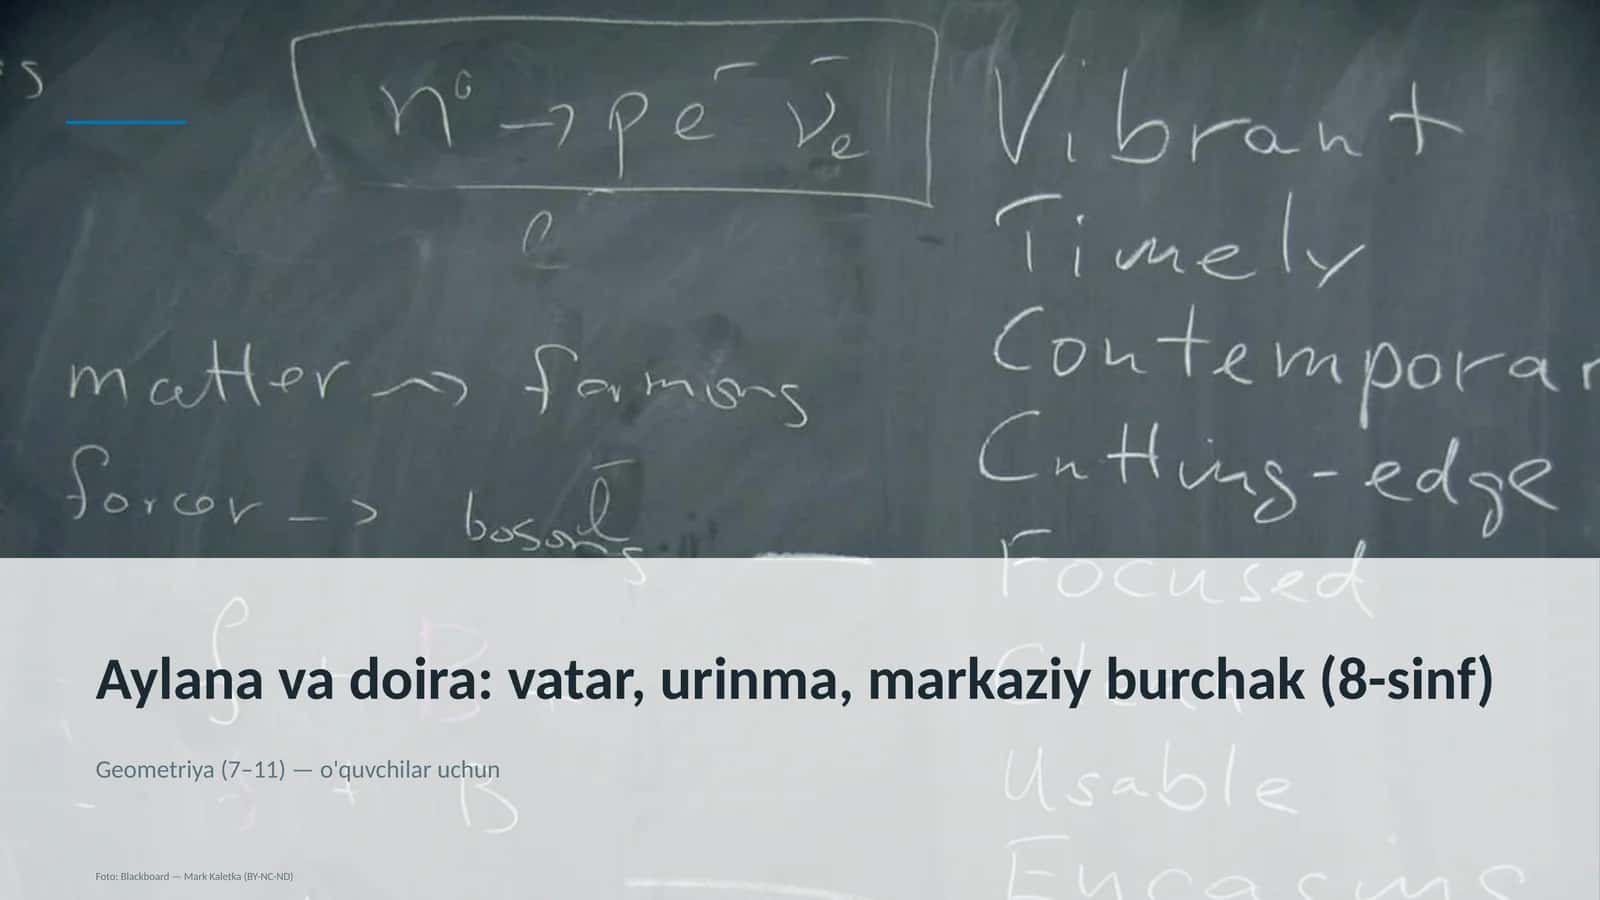 s
n⁰ → p e⁻ ν̄e
Vibrant
e
Timely
matter → fermions
Contemporar
forces -> bosons
Cutting-edge
Focused
B
Aylana va doira: vatar, urinma, markaziy burchak (8-sinf)
Geometriya (7–11) — o'quvchilar uchun
Usable
B
Foto: Blackboard — Mark Kaletka (BY-NC-ND)
Engaging